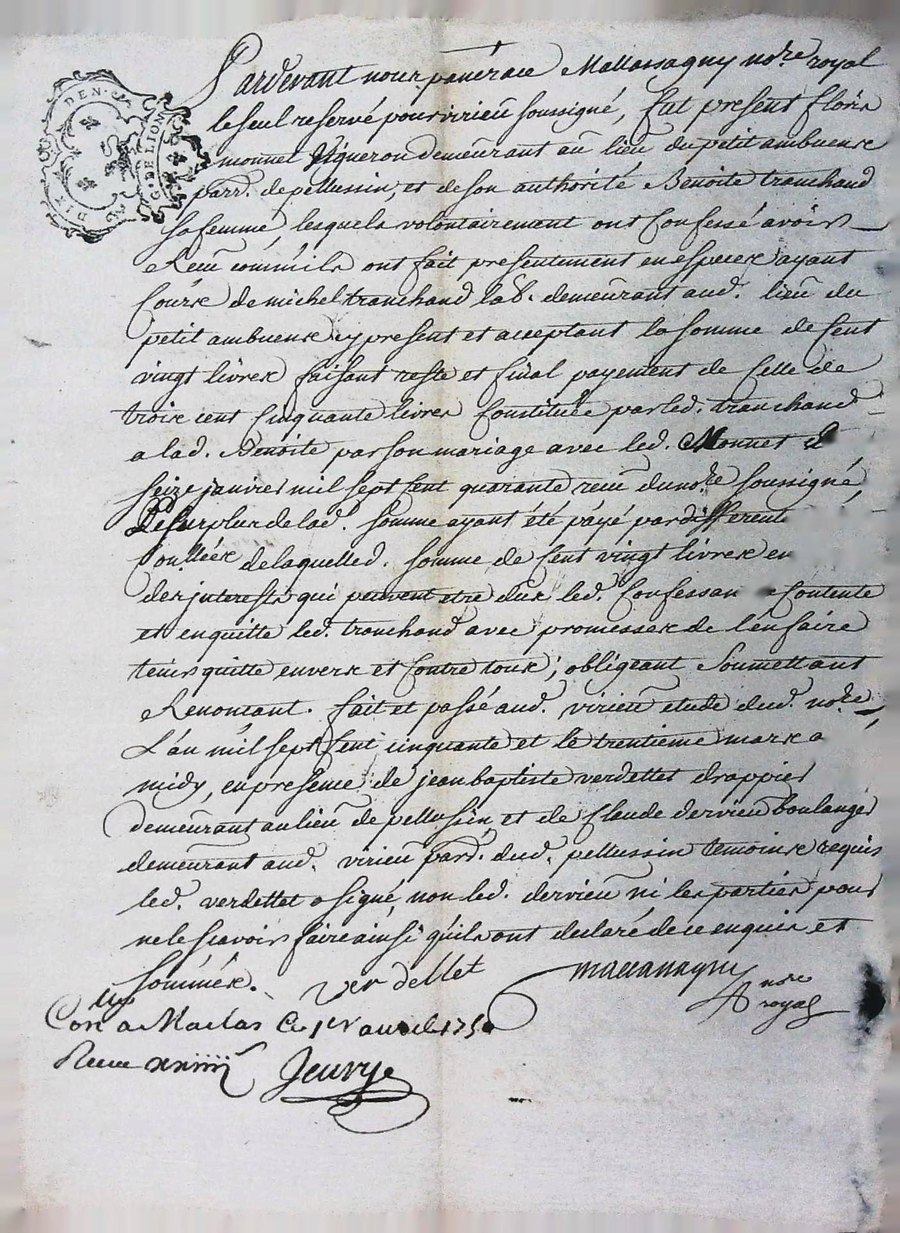 DEN.
DIX
G. DE LION
Pardevant nous pancrace Mallassagny no.re royal
le seul reservé pour virieu soussigné, fut present Floris
monnet Vigneron demeurant au lieu du petit ambuens
parr. de pellussin, et de son authorité Benoite tranchand
sa femme lesquels volontairement ont Confessé avoir
Receu comm'ils ont fait presentement en especes ayant
Cours de michel tranchand lab. demeurant aud. lieu du
petit ambuens cy present et acceptant la somme de Cent
vingt livres faisant reste et final payement de Celle de
trois cent Cinquante livres Constituée par led. tranchand
a lad. Benoite par son mariage avec led. Monnet
seize janvier mil sept Cent quarante receu du no.re soussigné,
Le surplus de lad. somme ayant été payé par different
de laquelle d. somme de Cent vingt livres en
des interests qui peuvent etre dus led. Confessan Contente
et en quitte led. tranchand avec promesses de l'en faire
tenir quitte envers et Contre tous; obligeant Soumettant
Renoncant. fait et passé aud. virieu etude dud. no.re,
L'an mil sept Cent cinquante et le trentieme mars a
midy, en presence de jean baptiste verdettet drappier
demeurant au lieu de pellussin et de Claude dervieu boulanger
demeurant aud. virieu parr. dud. pellussin temoins requis
led. verdettet a signé, non led. dervieu ni les parties pour
ne le scavoir faire ainsi qu'ils ont declaré de ce enquis et
sommés. verdettet mallassagny
no.re
royal
Con.lé a Maclas le 1er avril 1750
Receu Jeurye